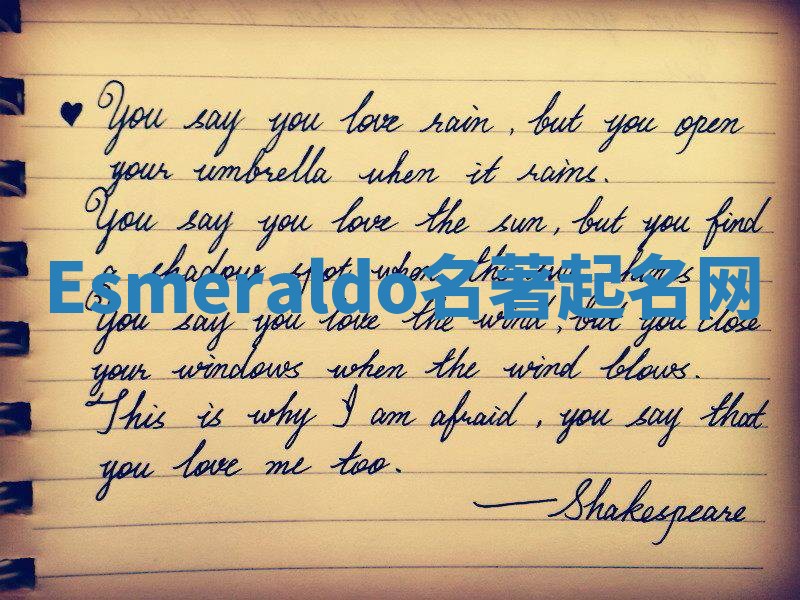 ♥ You say you love rain, but you open
your umbrella when it rains.
You say you love the sun, but you find
a shadow spot when the sun shines
Esmeraldo名著起名网
You say you love the wind, but you close
your windows when the wind blows.
This is why I am afraid, you say that
you love me too.
—Shakespeare